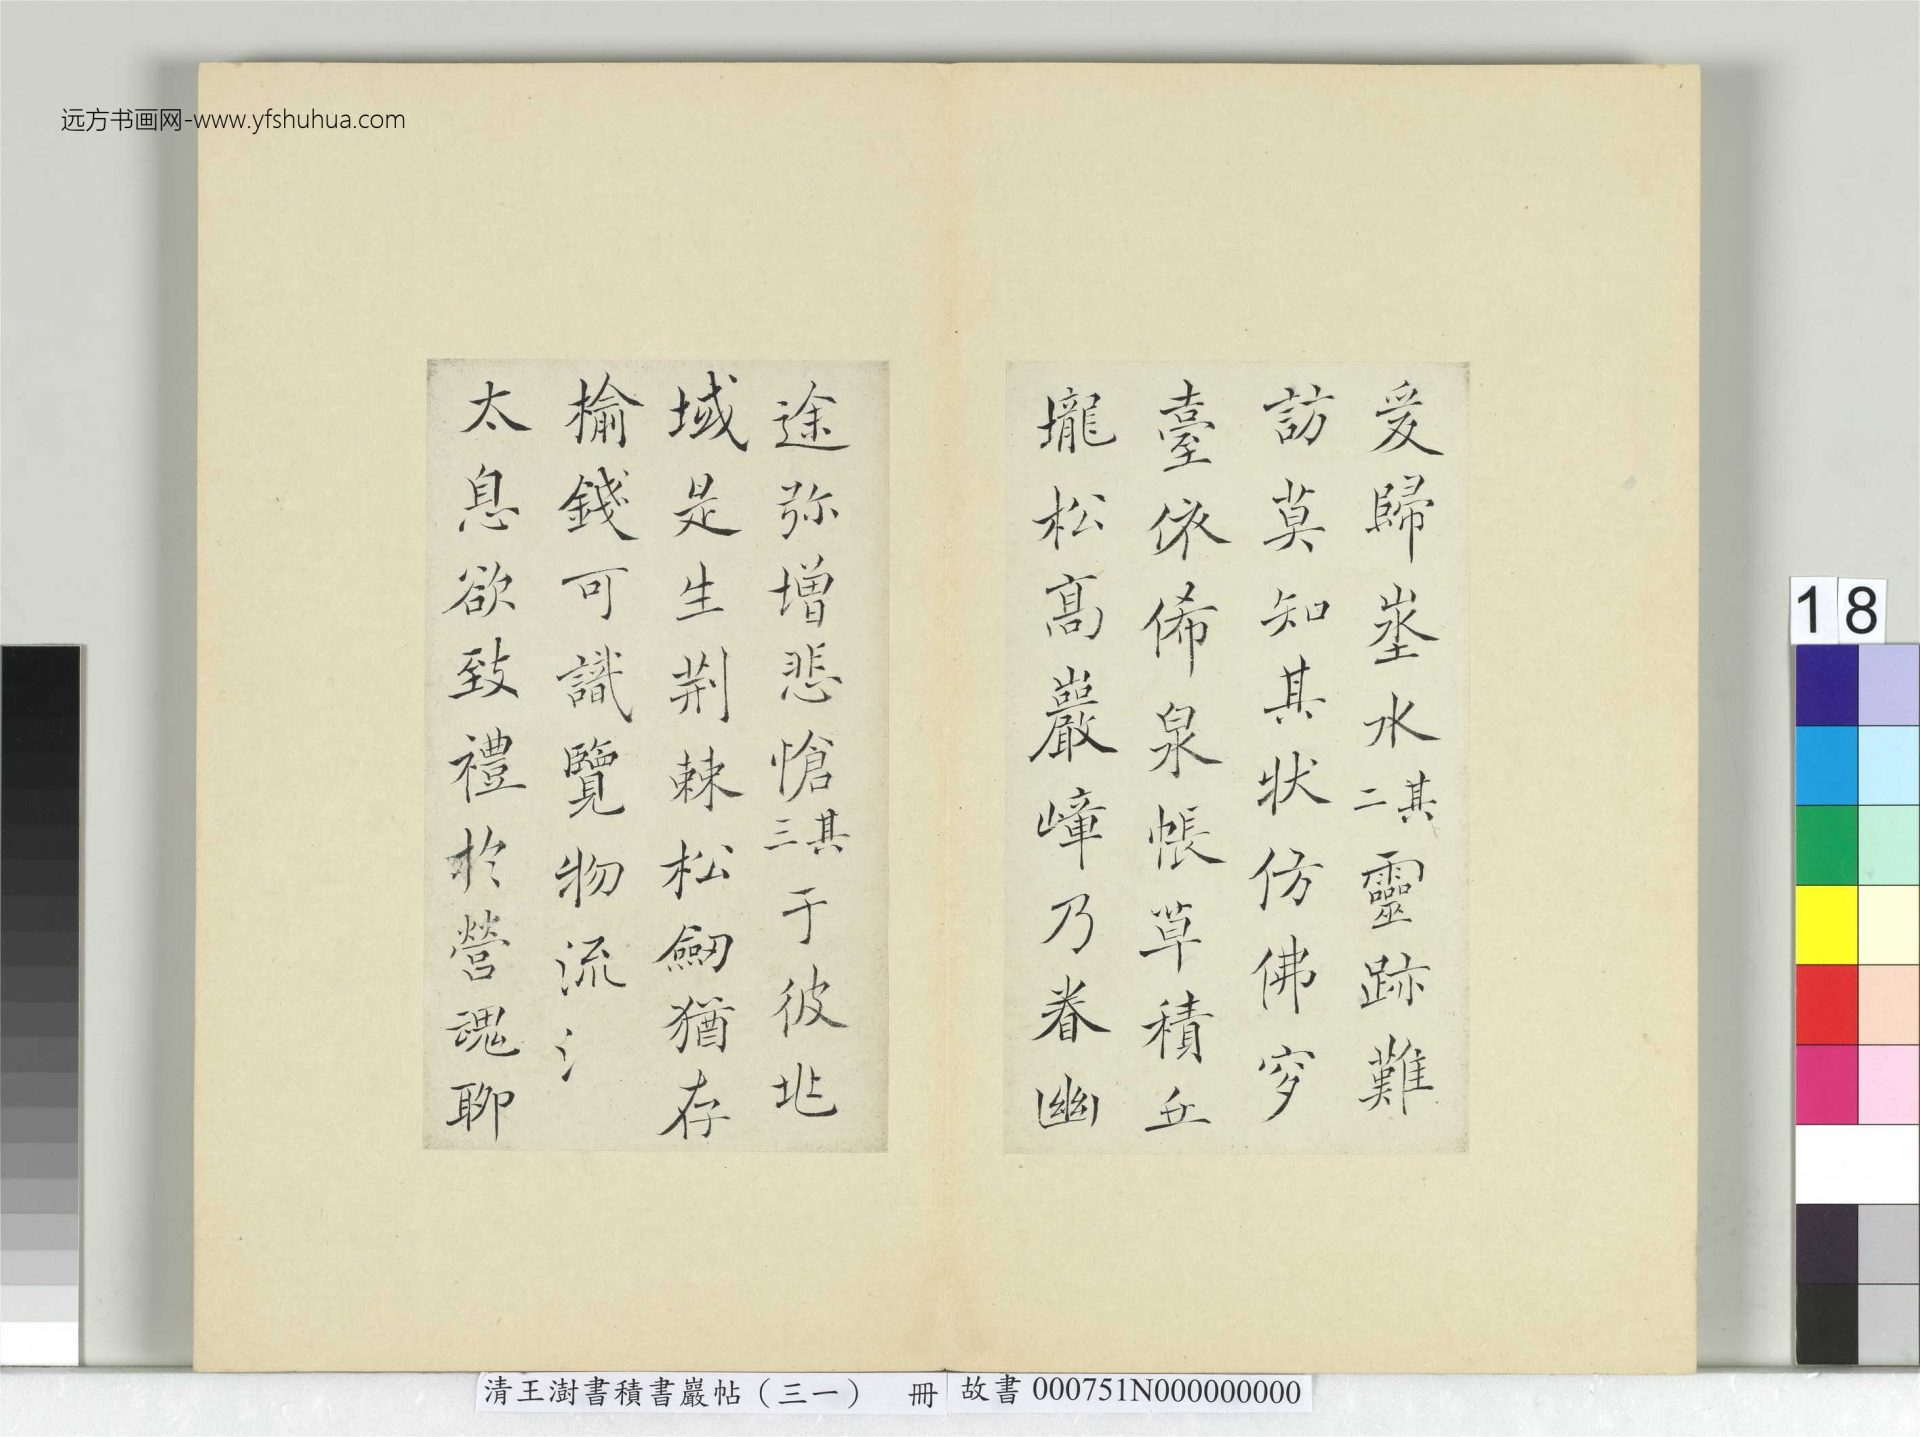 远方书画网-www.yfshuhua.com
爰歸埀水其二靈跡難
訪莫知其狀仿佛穸
臺依俙泉帳草積丘
壠松髙巖嶂乃眷幽
途弥增悲愴其三于彼兆
域是生荆棘松劒猶存
榆錢可識覽物流氵
太息欲致禮於營魂聊
18
清王澍書積書巖帖（三一） 冊 故書 000751N000000000